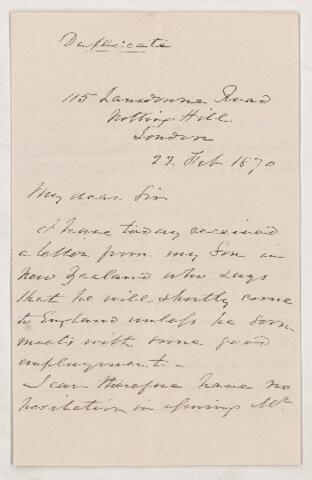 Duplicate
115 Lansdowne Road
Notting Hill
London
27 Feb 1870
My dear Sir
I have today received
a letter from my Son in
New Zealand who says
that he will shortly come
to England unless he soon
meets with some good
employment.
I can therefore have no
hesitation in asking Mr